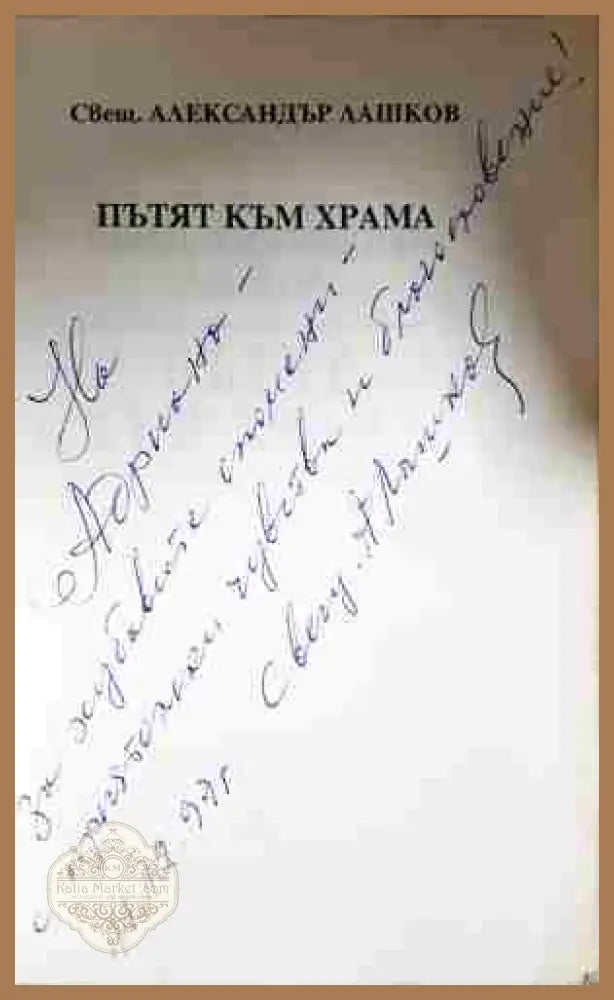 Свещ. АЛЕКСАНДЪР ЛАШКОВ
ПЪТЯТ КЪМ ХРАМА
На
Адриана -
За хубавите спомени -
с чувства и благословение!
Свещ. А Лашков
Katia Market .com